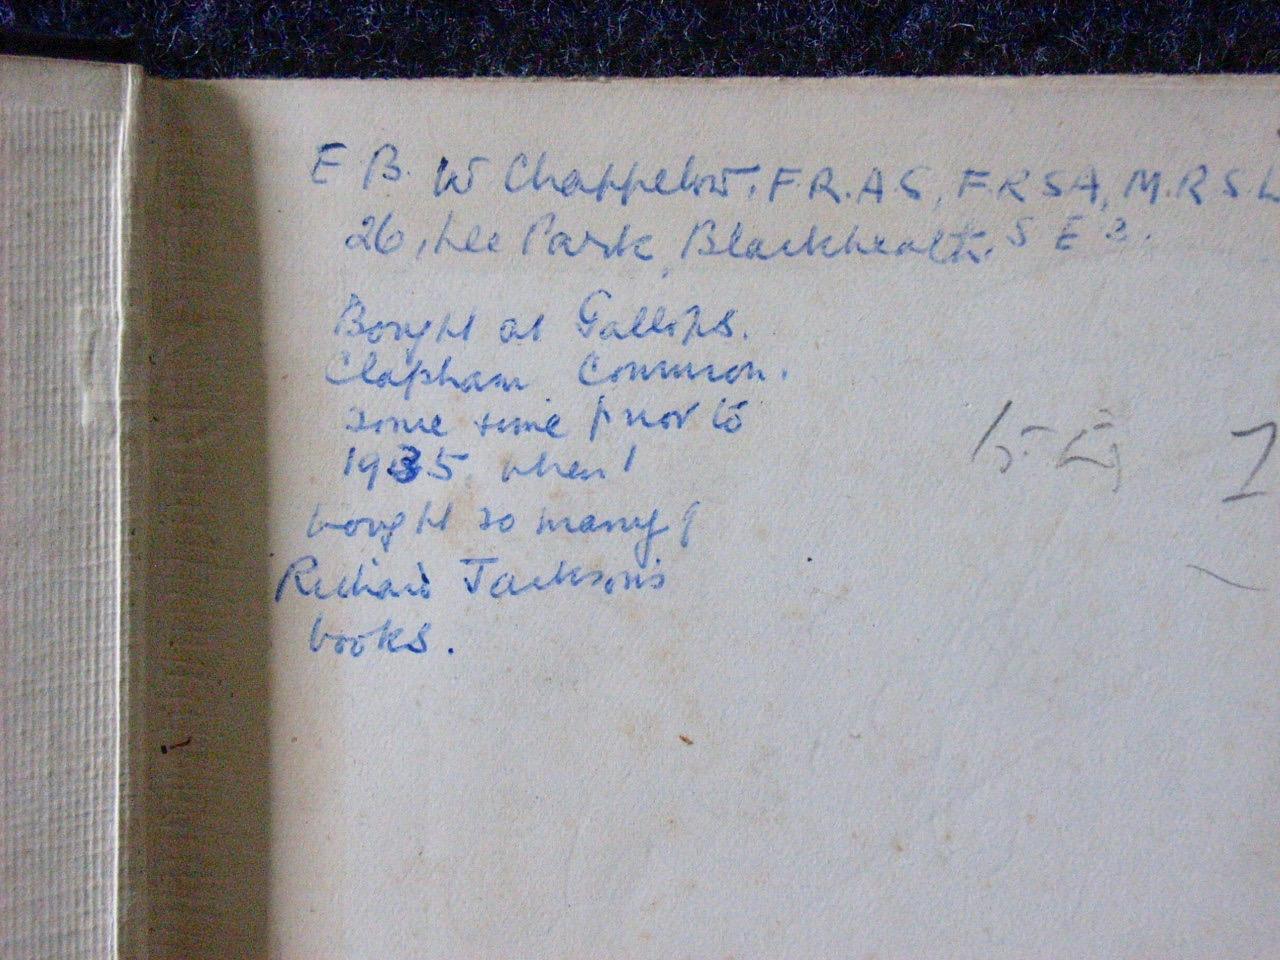 E B. W Chappelow. F R. A S, F R S A, M. R S. L
26, Lee Park, Blackheath. S E 3.
Bought at Gallops.
Clapham Common.
some time prior to
1935 when I
bought so many of
Richard Jackson's
books.